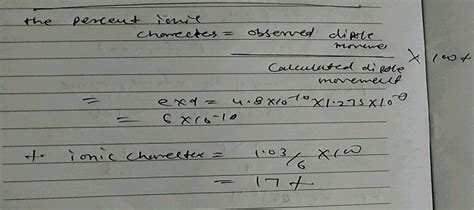 the percent ionic
charecter = observed dipole movement / Calculated dipole movement × 100 %
= exd = 4.8×10⁻¹⁰ × 1.275×10⁻⁸
= 6×10-10
% ionic charecter = 1.03/6 ×100
= 17 %